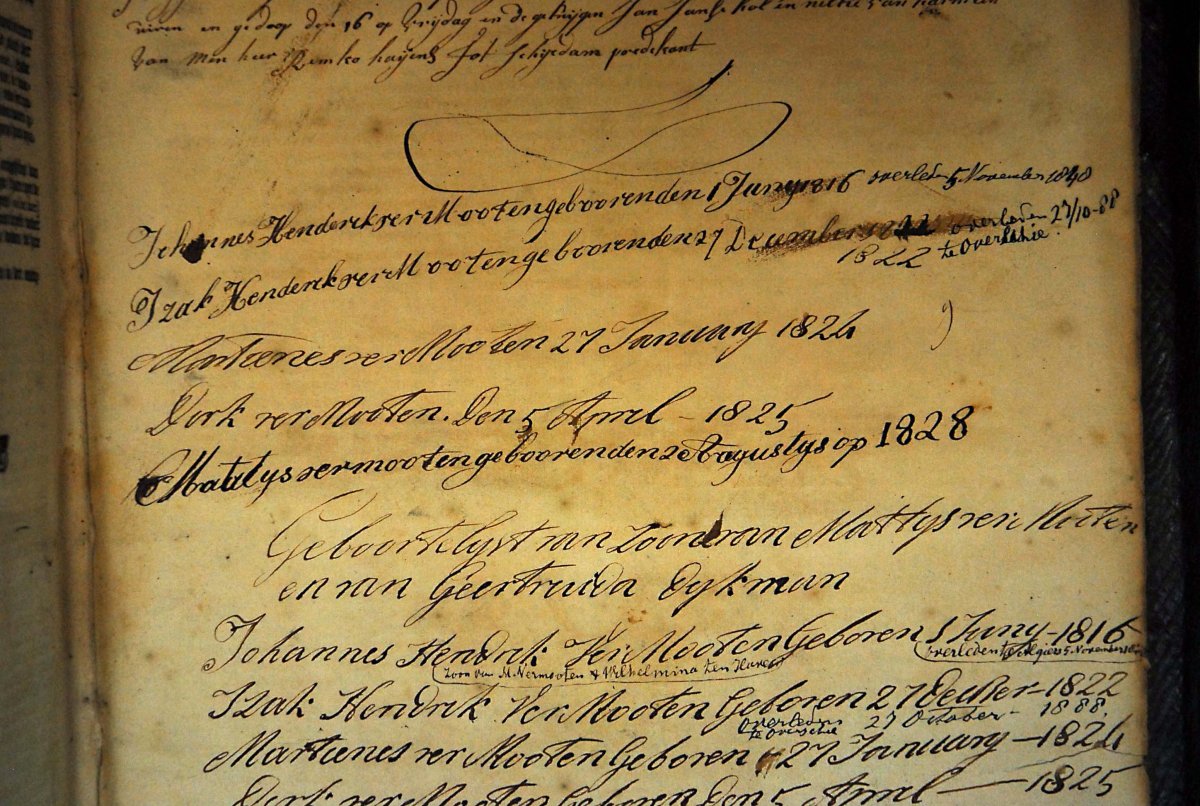 en gedoop den 16 op vrijdag en de getuijgen Jan Janse kol en van
van Mijn heer Remko haijens tot schijedam predekant
Johannes Henderck ver Mooten geboorenden 1 Juny 1816 overleden 5 November 1848
Izak Henderck ver Mooten geboorenden 27 December overleden 27/10-88
1822 te Overschie.
Martienes ver Mooten 27 January 1824
Derk ver Mooten. Den 5 April - 1825
Mattys vermooten geboorenden 2 Augustys op 1828
Geboortelyst van Zoone van Mattys ver Mooten
en van Geertruida Dykman
Johannes Hendrik Ver Mooten Geboren 1 Juny - 1816
zoon van M. Vermooten & Wilhelmina ten Haven overleden 5 November
Izak Hendrik Ver Mooten Geboren 27 Decber - 1822
overleden 27 October - 1888.
te Overschie
Martienes ver Mooten Geboren 27 January - 1824
Derk ver Mooten Geboren Den 5 April - 1825